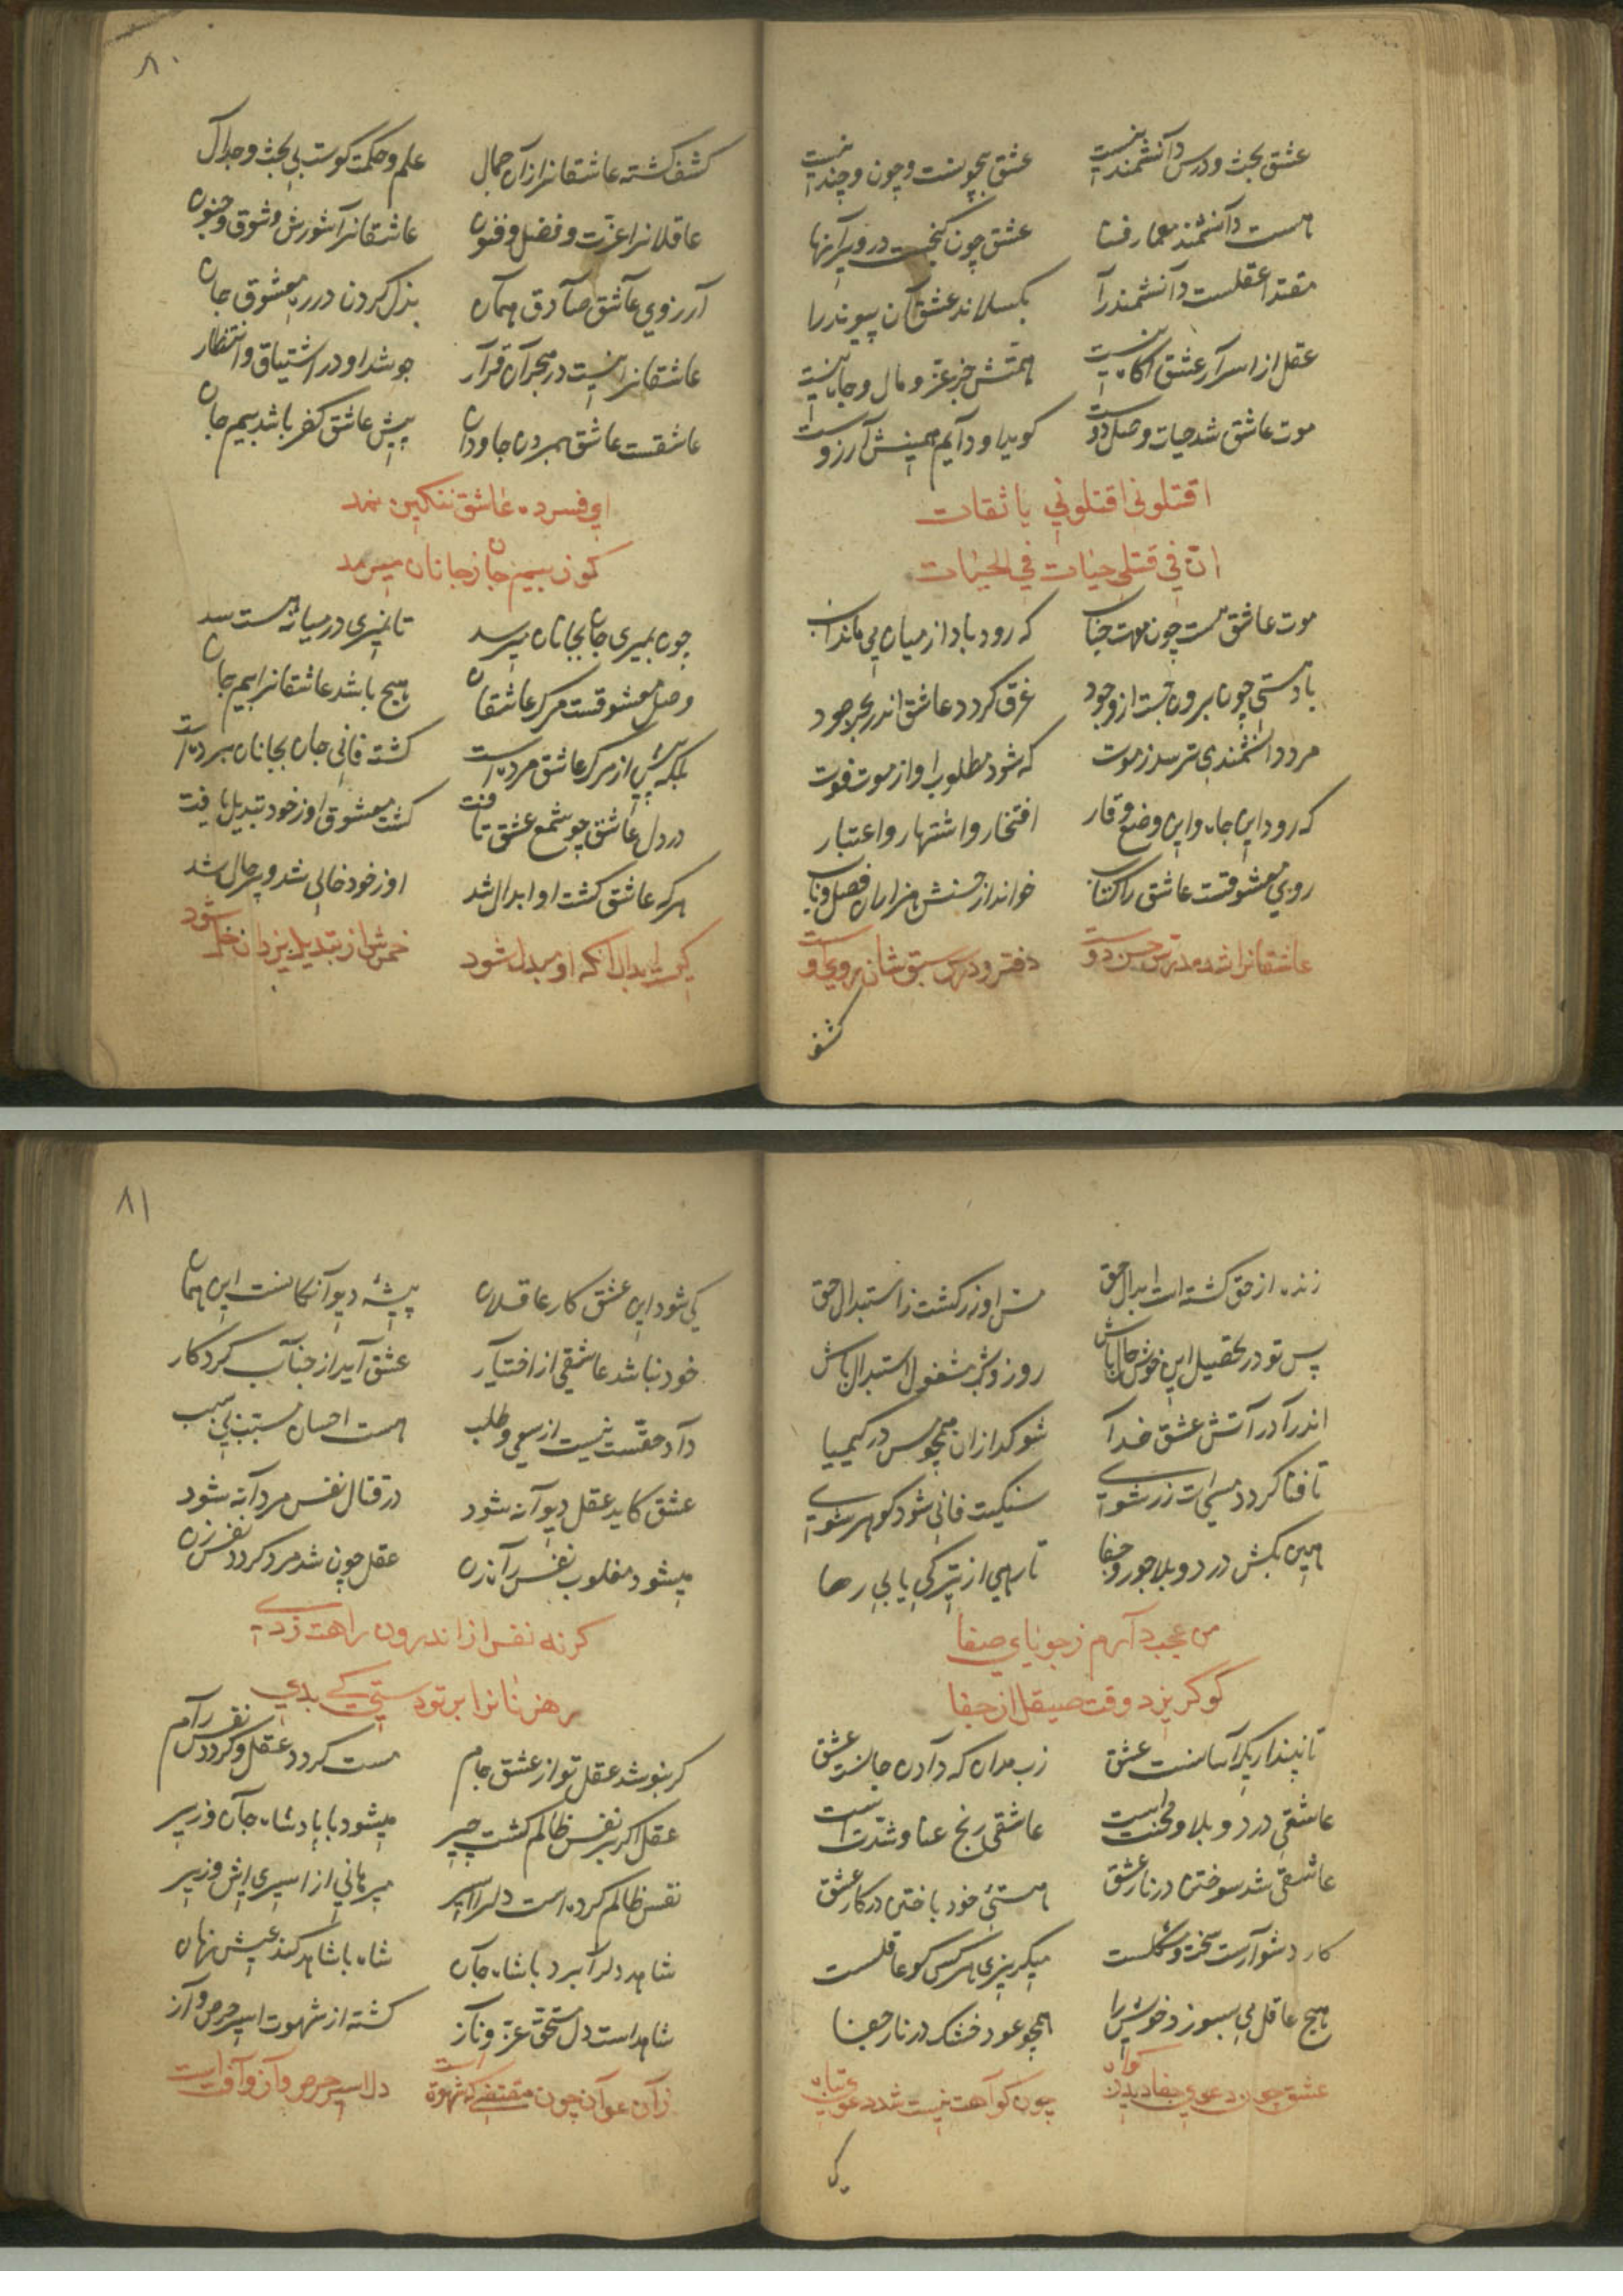 عشق بحث و درس دانشمند نیست عشق بیچونست و چون و چند نیست
هست دانشمند معمار فنا عشق چون گنجست در ویرانها
مقتدا عقلست دانشمند را بکسلاند عشق آن پیوند را
عقل از اسرار عشق آگاه نیست همتش جز عز و مال و جاه نیست
موت عاشق شد حیات و وصل دوست گوید او دایم همینش آرزوست
اقتلونی اقتلونی یا ثقات
ان فی قتلی حیات فی الحیات
موت عاشق هست چون موت حباب که رود باد از میان پی ماند آب
باد هستی چون برون جست از وجود غرق کردد عاشق اندر بحر جود
مرد دانشمند می ترسد ز موت که شود مطلوب او از موت فوت
که رود این جاه و این وضع و قار افتخار و اشتهار و اعتبار
روی معشوقست عاشق را کتاب خواند از حسنش هزاران فصل و باب
عاشقانرا شد مدرس حسن دوست دفتر و درس و سبق شان روی اوست
کشف
۸۰
کشف کشته عاشقانرا زان جمال علم و حکمت کوست بی بحث و جدال
عاقلانرا عزت و فضل و فنون عاشقانرا شورش و شوق و جنون
آرزوی عاشق صادق همان بذل کردن در ره معشوق جان
عاشقانرا نیست در هجران قرار جوشد او در اشتیاق و انتظار
عاشقست عاشق بمردن جاودان پیش عاشق کفر باشد بیم جان
ای فسرده عاشق ننکین نمد
کو ز بیم جان ز جانان میرمد
چون بمیری جان بجانان میرسد تا نمیری در میانه هست سد
وصل معشوقست مرک عاشقان هیچ باشد عاشقانرا بیم جان
بلکه پیش از مرک عاشق مرده است کشته فانی جان بجانان برده است
در دل عاشق چو شمع عشق تافت کشت معشوق او ز خود تبدیل یافت
هر که عاشق کشت او ابدال شد او ز خود خالی شد و پر حال شد
کیست ابدال آنکه او مبدل شود خمرش از تبدیل یزدان خل شود
زنده از حق کشته است ابدال حق مس او زر کشت ز استبدال حق
پس تو در تحصیل این خوش حال باش روز و شب مشغول استبدال باش
اندرآ در آتش عشق خدا شو کدازان همچو مس در کیمیا
تا فنا کردد مسی ات زر شوی سنکیت فانی شود کوهر شوی
هین بکش درد و بلا جور و جفا تا رهی از تیرکی یابی رها
من عجب دارم ز جویای صفا
کو کریزد وقت صیقل از جفا
تا نپنداری که آسانست عشق زب مدان که دادن جانست عشق
عاشقی درد و بلا و محنت است عاشقی رنج عنا و شدت است
عاشقی شد سوختن در نار عشق هستیٔ خود باختن در کار عشق
کار دشوارست سخت و مشکلست میکریزی هر کس کو عاقلست
هیچ عاقل می سبوزد خویش را همچو عود خشک در نار جفا
عشق چون دعوی جفا دیدن کواه چون کواهت نیست شد دعوی تباه
کی
۸۱
کی شود این عشق کار عاقلان پیشهٔ دیوانکانست این همان
خود نباشد عاشقی از اختیار عشق آید از جناب کردکار
داد حقست نیست از سعی و طلب هست احسان مسبب بی سبب
عشق کاید عقل دیوانه شود در قتال نفس مردانه شود
میشود مغلوب نفس آن زن عقل چون شد مرد کردد نفس زن
کرنه نفس از اندرون راهت زدی
رهزنانرا بر تو دستی کی بدی
کر بنوشد عقل تو از عشق جام مست کردد عقل و کردد نفس رام
عقل اکر بر نفس ظالم کشت چیر میشود با پادشاه جان وزیر
نفس ظالم کرده است دلرا اسیر میرهانی از اسیری اش وزیر
شاهد دلرا برد با شاه جان شاه با شاهد کند عیش نهان
شاهد است دل مستحق عز و ناز کشته از شهوت اسیر حرص و آز
زآن عوان چون مقتضی که شهوة است دل اسیر حرص و آز و آفت است